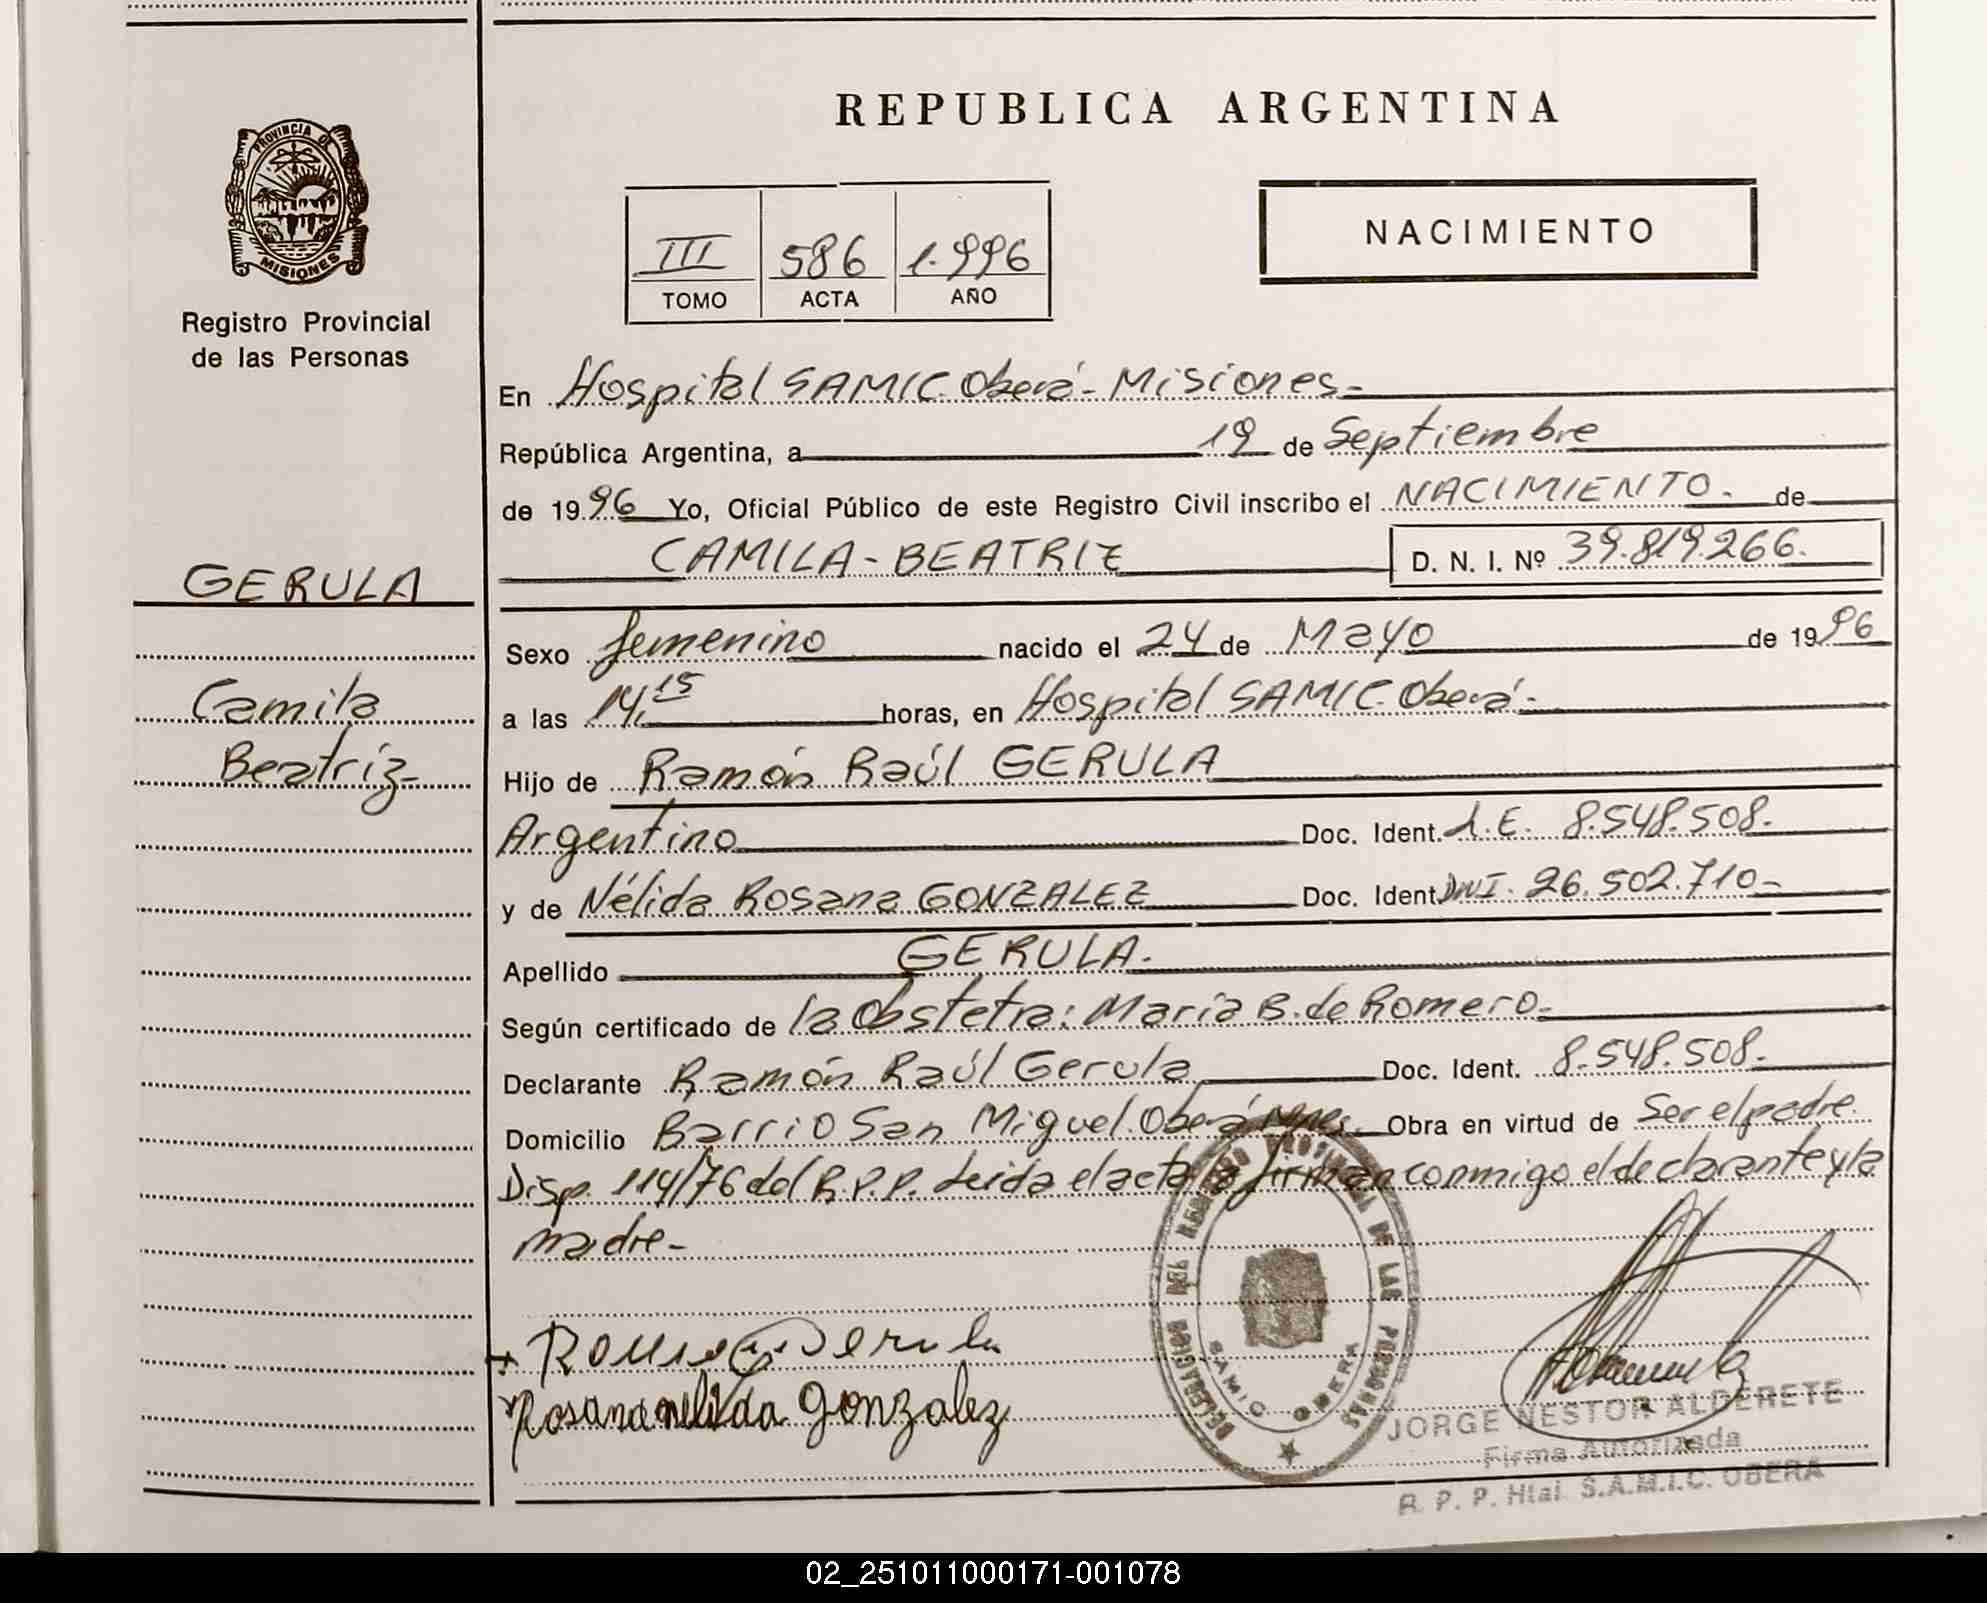 PROVINCIA DE
MISIONES
Registro Provincial
de las Personas
GERULA
Camila
Beatriz
REPUBLICA ARGENTINA
III 586 1.996
TOMO ACTA AÑO
NACIMIENTO
En Hospital SAMIC. Oberá - Misiones.-
República Argentina, a 19 de Septiembre
de 1996 Yo, Oficial Público de este Registro Civil inscribo el NACIMIENTO. de
CAMILA - BEATRIZ D. N. I. Nº 39.819.266.
Sexo femenino nacido el 24 de Mayo de 1996
a las 14,15 horas, en Hospital SAMIC. Oberá.-
Hijo de Ramón Raúl GERULA
Argentino Doc. Ident. L.E. 8.548.508.
y de Nélida Rosana GONZALEZ Doc. Ident. DNI. 26.502.710-
Apellido GERULA.
Según certificado de la Obstetra: María B. de Romero.-
Declarante Ramón Raúl Gerula Doc. Ident. 8.548.508.-
Domicilio Barrio San Miguel. Oberá Mnes. Obra en virtud de Ser el padre.
Disp. 114/76 del R.P.P. Leida el acta la firman conmigo el declarante y la
madre-
Gerula
Rosana nelida gonzalez
DELEGACION DEL REGISTRO PROVINCIAL DE LAS PERSONAS
SAMIC OBERA
JORGE NESTOR ALDERETE
Firma Autorizada
R. P. P. Htal S.A.M.I.C. OBERA
02_251011000171-001078